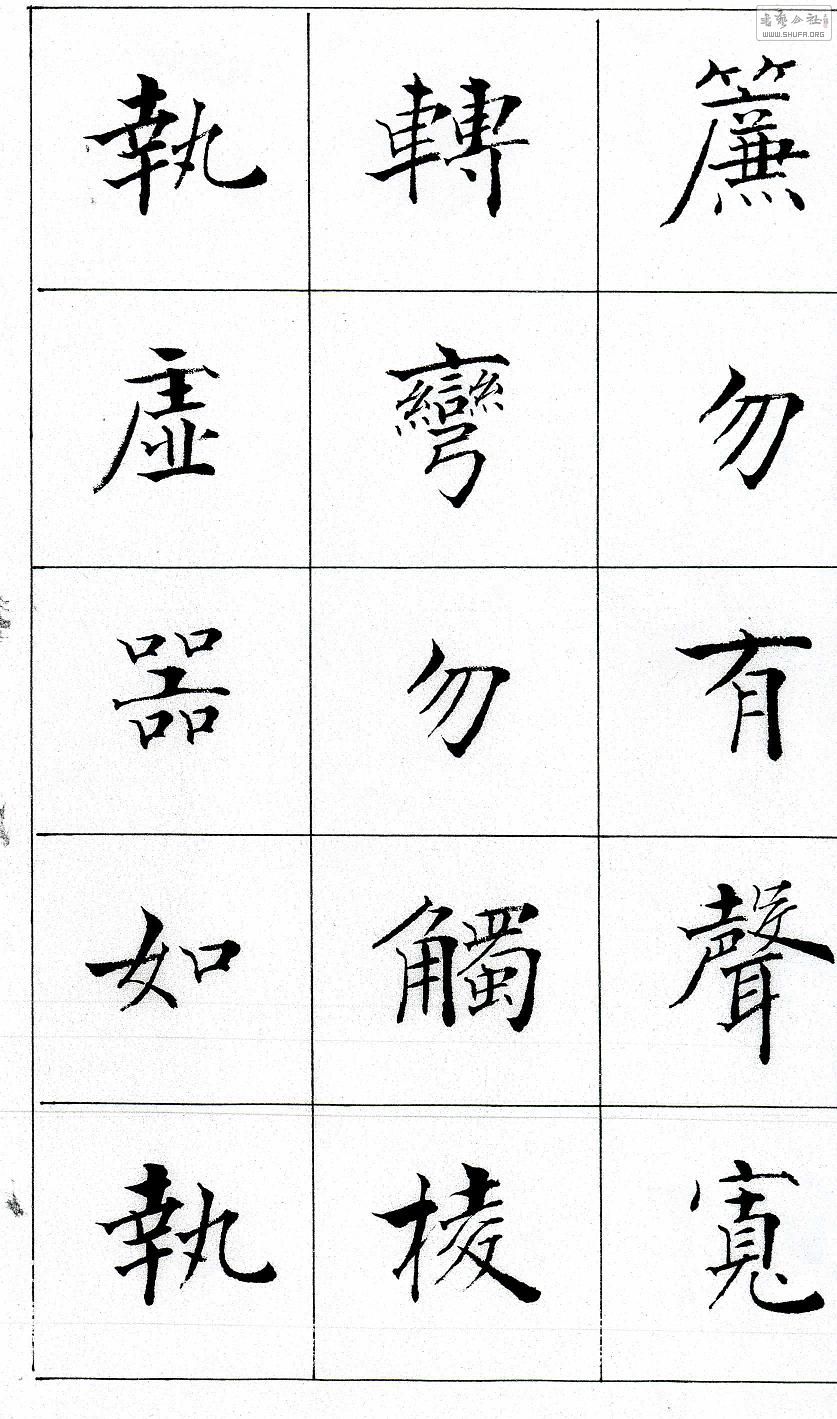 簾勿有聲寬
轉彎勿觸棱
執虛器如執
WWW.SHUFA.ORG